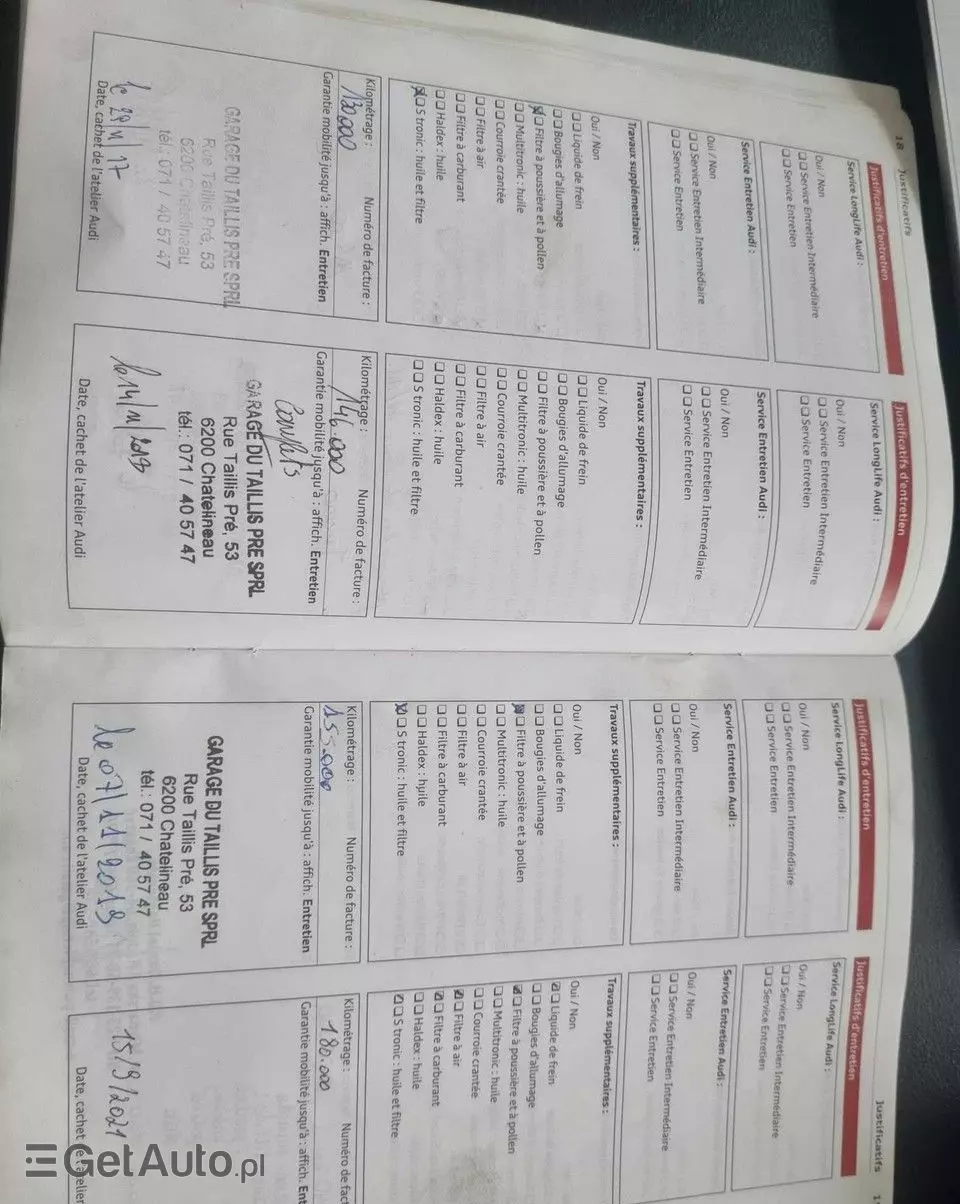 18
Justificatifs
Justificatifs d'entretien
Service LongLife Audi :
Oui / Non
Service Entretien Intermédiaire
Service Entretien
Service Entretien Audi :
Oui / Non
Service Entretien Intermédiaire
Service Entretien
Travaux supplémentaires :
Oui / Non
Liquide de frein
Bougies d'allumage
Filtre à poussière et à pollen
Multitronic : huile
Courroie crantée
Filtre à air
Filtre à carburant
Haldex : huile
S tronic : huile et filtre
Kilométrage : Numéro de facture :
130000
Garantie mobilité jusqu'à : affich. Entretien
GARAGE DU TAILLIS PRE SPRL
Rue Taillis Pré, 53
6200 Chatelineau
tél.: 071 / 40 57 47
le 29/11/17
Date, cachet de l'atelier Audi
Justificatifs d'entretien
Service LongLife Audi :
Oui / Non
Service Entretien Intermédiaire
Service Entretien
Service Entretien Audi :
Oui / Non
Service Entretien Intermédiaire
Service Entretien
Travaux supplémentaires :
Oui / Non
Liquide de frein
Bougies d'allumage
Filtre à poussière et à pollen
Multitronic : huile
Courroie crantée
Filtre à air
Filtre à carburant
Haldex : huile
S tronic : huile et filtre
Kilométrage : Numéro de facture :
146.000
Garantie mobilité jusqu'à : affich. Entretien
GARAGE DU TAILLIS PRE SPRL
Rue Taillis Pré, 53
6200 Chatelineau
tél.: 071 / 40 57 47
le 14/11/2019
Date, cachet de l'atelier Audi
Justificatifs d'entretien
Service LongLife Audi :
Oui / Non
Service Entretien Intermédiaire
Service Entretien
Service Entretien Audi :
Oui / Non
Service Entretien Intermédiaire
Service Entretien
Travaux supplémentaires :
Oui / Non
Liquide de frein
Bougies d'allumage
Filtre à poussière et à pollen
Multitronic : huile
Courroie crantée
Filtre à air
Filtre à carburant
Haldex : huile
S tronic : huile et filtre
Kilométrage : Numéro de facture :
155.000
Garantie mobilité jusqu'à : affich. Entretien
GARAGE DU TAILLIS PRE SPRL
Rue Taillis Pré, 53
6200 Chatelineau
tél.: 071 / 40 57 47
le 07/11/2019
Date, cachet de l'atelier Audi
Justificatifs
Justificatifs d'entretien
Service LongLife Audi :
Oui / Non
Service Entretien Intermédiaire
Service Entretien
Service Entretien Audi :
Oui / Non
Service Entretien Intermédiaire
Service Entretien
Travaux supplémentaires :
Oui / Non
Liquide de frein
Bougies d'allumage
Filtre à poussière et à pollen
Multitronic : huile
Courroie crantée
Filtre à air
Filtre à carburant
Haldex : huile
S tronic : huile et filtre
Kilométrage : Numéro de fact
180.000
Garantie mobilité jusqu'à : affich. Ent
15/9/2021
Date, cachet de l'atelier
GetAuto.pl